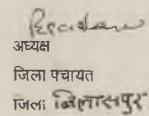 अध्यक्ष
जिला पचायत
जिला बिलासपुर